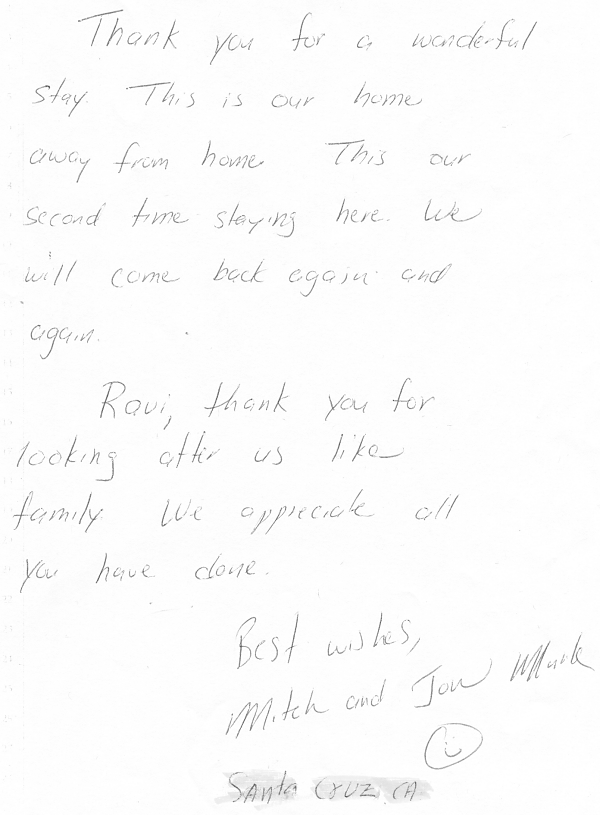 Thank you for a wonderful
stay. This is our home
away from home. This our
second time staying here. We
will come back again and
again.
Ravi, thank you for
looking after us like
family. We appreciate all
you have done.
Best wishes,
Mitch and
Santa Cruz, CA